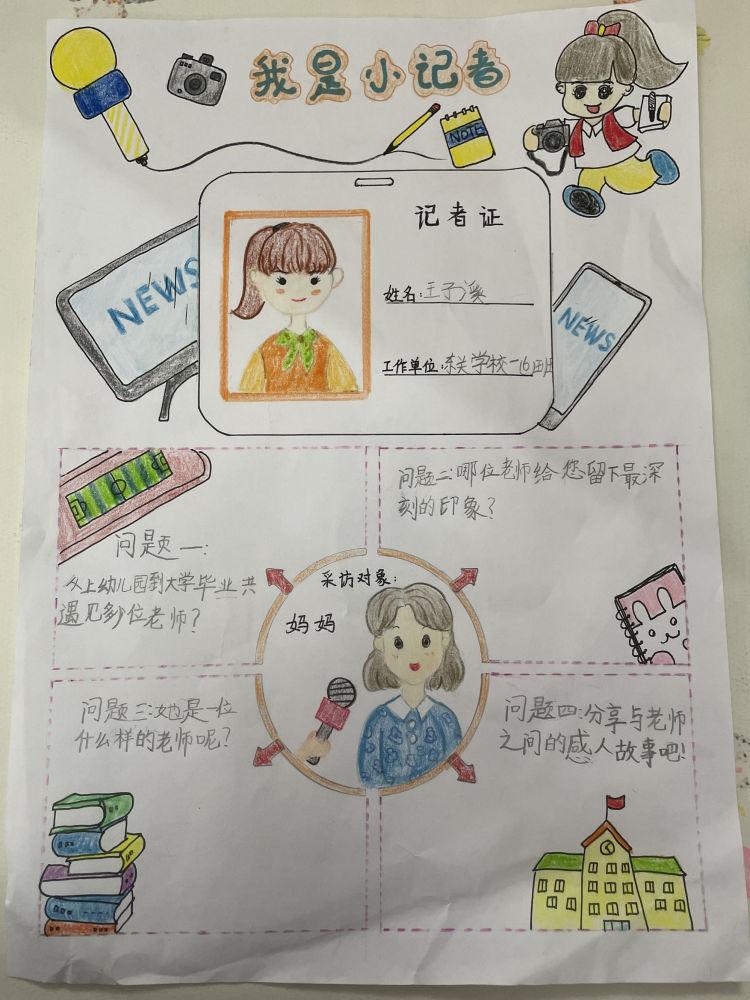 我是小记者
NOTE
记者证
姓名:王子溪
工作单位:东关学校一(6)班
NEWS
NEWS
问题一:
从上幼儿园到大学毕业共
遇见多少位老师?
问题二:哪位老师给您留下最深
刻的印象?
采访对象:
妈妈
问题三:她是一位
什么样的老师呢?
问题四:分享与老师
之间的感人故事吧!